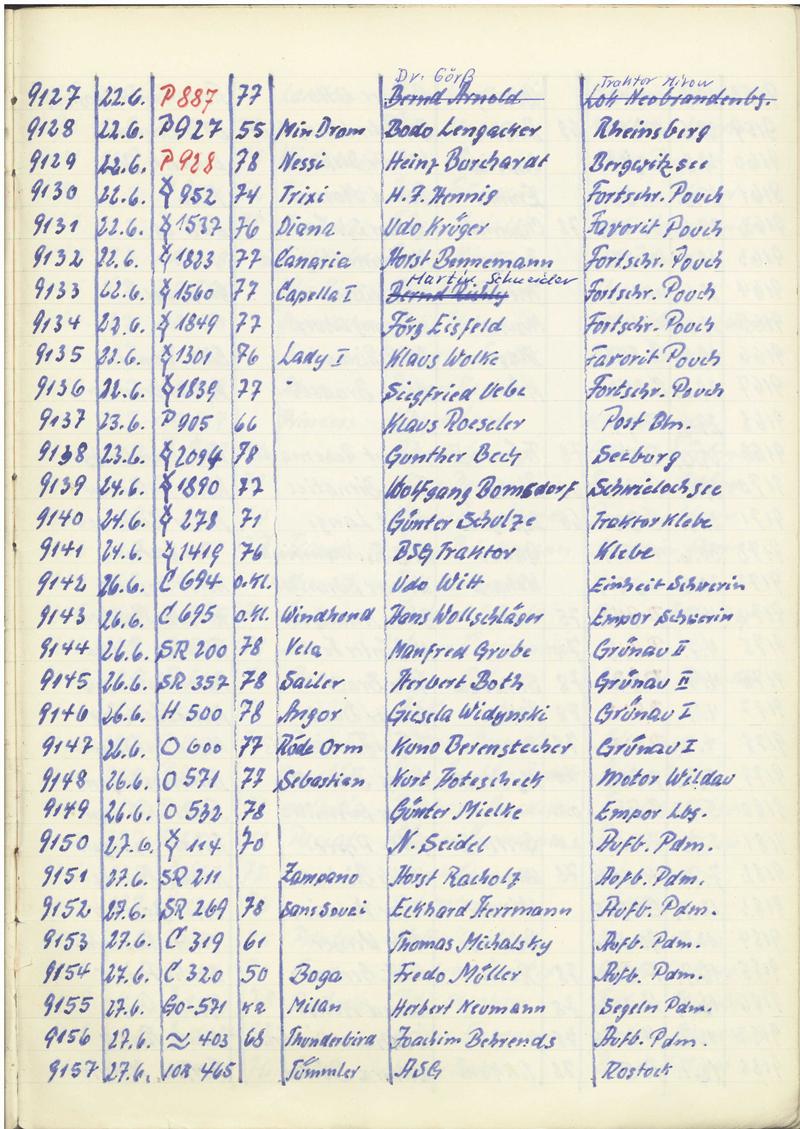 Dr. Görß Traktor Mirow
9127 22.6. P 887 77 Bernd Arnold Lok Neobrandenbg.
9128 22.6. P 927 55 Min Drom Bodo Lengacker Rheinsberg
9129 22.6. P 928 78 Nessi Heinz Borchardt Bergwitzsee
9130 22.6. 952 74 Trixi H.F. Hennig Fortschr. Pouch
9131 22.6. 1537 76 Diana Udo Kröger Favorit Pouch
9132 22.6. 1823 77 Canaria Horst Bennemann Fortschr. Pouch
Martin Schneider
9133 22.6. 1560 77 Capella I Bernd Fortschr. Pouch
9134 22.6. 1849 77 Jörg Eisfeld Fortschr. Pouch
9135 22.6. 1301 76 Lady I Klaus Wolke Favorit Pouch
9136 22.6. 1839 77 Siegfried Uebe Fortschr. Pouch
9137 23.6. P 905 66 Klaus Roeseler Post Bln.
9138 23.6. 2094 78 Gunther Bech Seeburg
9139 24.6. 1890 77 Wolfgang Bornsdorf Schwielochsee
9140 24.6. 278 71 Günter Schulze Traktor Klebe
9141 24.6. 1419 76 BSG Traktor Klebe
9142 26.6. C 694 o.Kl. Udo Witt Einheit Schwerin
9143 26.6. C 695 o.Kl. Windhond Hans Wollschläger Empor Schwerin
9144 26.6. SR 200 78 Vela Manfred Grube Grünau II
9145 26.6. SR 357 78 Sailer Herbert Both Grünau II
9146 26.6. H 500 78 Angor Giesela Widynski Grünau I
9147 26.6. O 600 77 Rode Orm Kuno Berenstecher Grünau I
9148 26.6. O 571 77 Sebastian Kurt Motor Wildau
9149 26.6. O 532 78 Günter Mielke Empor Lbg.
9150 27.6. 114 70 N. Seidel Aufb. Pdm.
9151 27.6. SR 211 Zampano Horst Racholz Aufb. Pdm.
9152 27.6. SR 269 78 Sanssouzi Eckhard Herrmann Aufb. Pdm.
9153 27.6. C 319 61 Thomas Michalsky Aufb. Pdm.
9154 27.6. C 320 50 Boga Fredo Möller Aufb. Pdm.
9155 27.6. GO-571 KR Milan Herbert Neumann Segeln Pdm.
9156 27.6. ≈ 403 68 Thunderbird Joachim Behrends Aufb. Pdm.
9157 27.6. 10R 465 Tümmler ASG Rostock